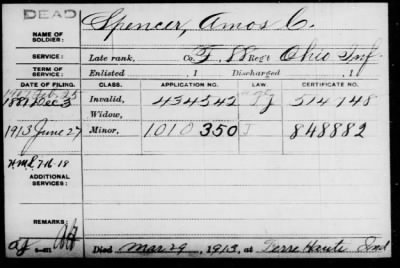 DEAD
NAME OF SOLDIER: Spencer, Amos C.
SERVICE: Late rank, Co. F, Reg't Ohio Inf.
TERM OF SERVICE: Enlisted , 1 Discharged , 1
DATE OF FILING. CLASS. APPLICATION NO. LAW. CERTIFICATE NO.
1881 Dec 3 Invalid, 434542 514748
Widow,
1913 June 27 Minor, 1010350 J 848882
ADDITIONAL SERVICES:
REMARKS:
Died Mar 29, 1913, at Terre Haute Ind